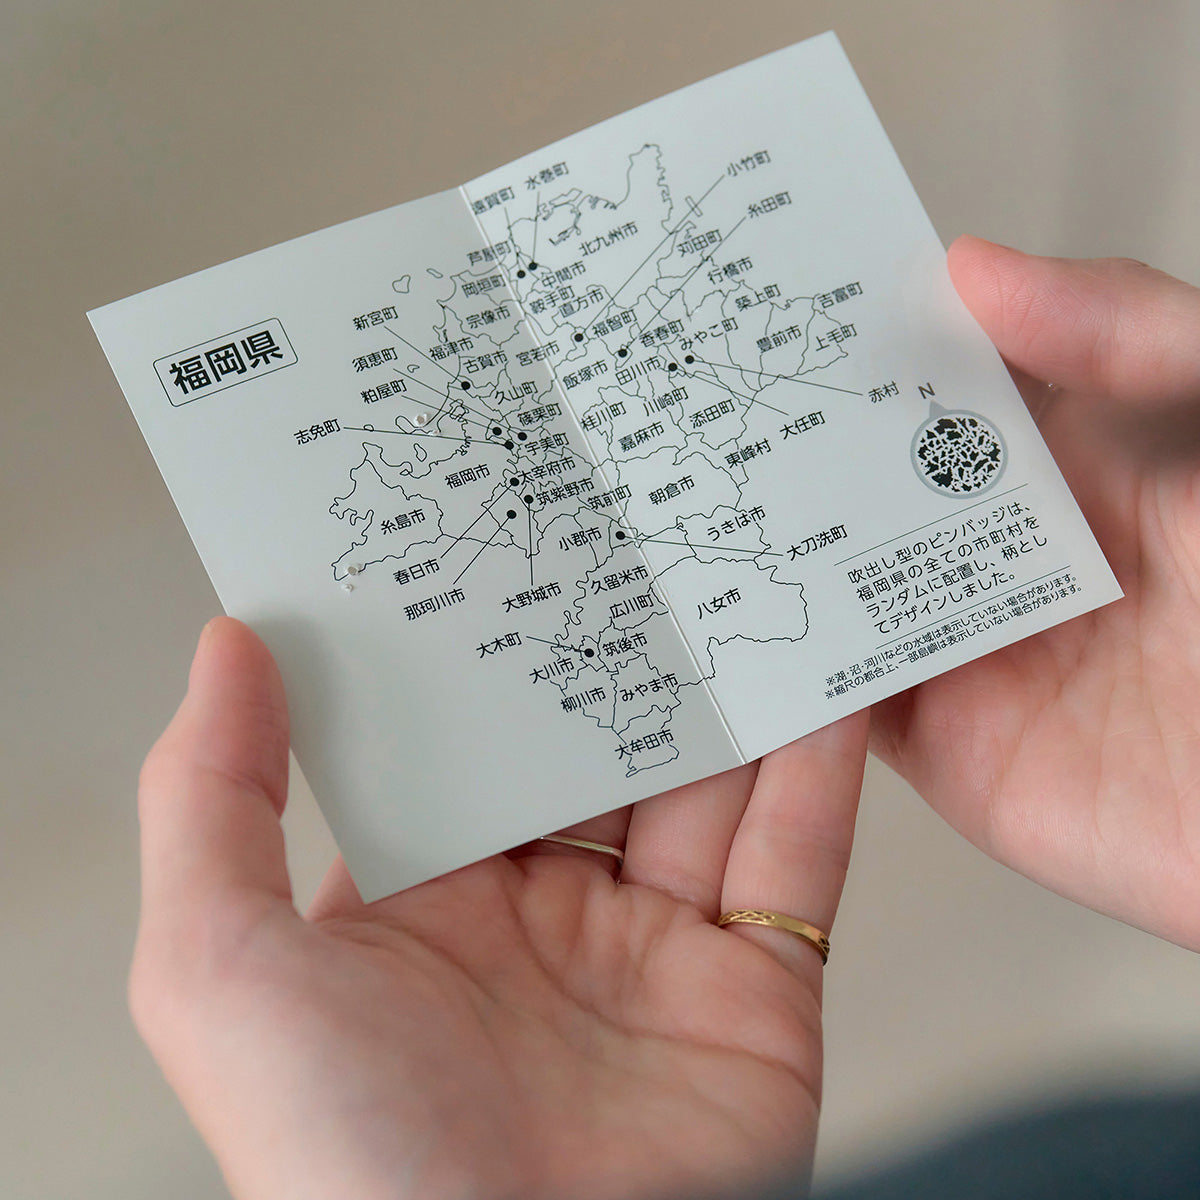 福岡県
水巻町
遠賀町
小竹町
糸田町
芦屋町
北九州市
苅田町
中間市
岡垣町
行橋市
鞍手町
直方市
築上町
吉富町
新宮町
宗像市
福智町
香春町
みやこ町
豊前市
上毛町
福津市
須恵町
古賀市
宮若市
飯塚市
田川市
粕屋町
久山町
赤村
N
篠栗町
桂川町
川崎町
添田町
大任町
志免町
宇美町
嘉麻市
東峰村
福岡市
太宰府市
筑紫野市
筑前町
朝倉市
糸島市
小郡市
うきは市
大刀洗町
春日市
那珂川市
大野城市
久留米市
広川町
八女市
大木町
筑後市
大川市
柳川市
みやま市
大牟田市
吹出し型のピンバッジは、
福岡県の全ての市町村を
ランダムに配置し、柄とし
てデザインしました。
※湖・沼・河川などの水域は表示していない場合があります。
※縮尺の都合上、一部島嶼は表示していない場合があります。